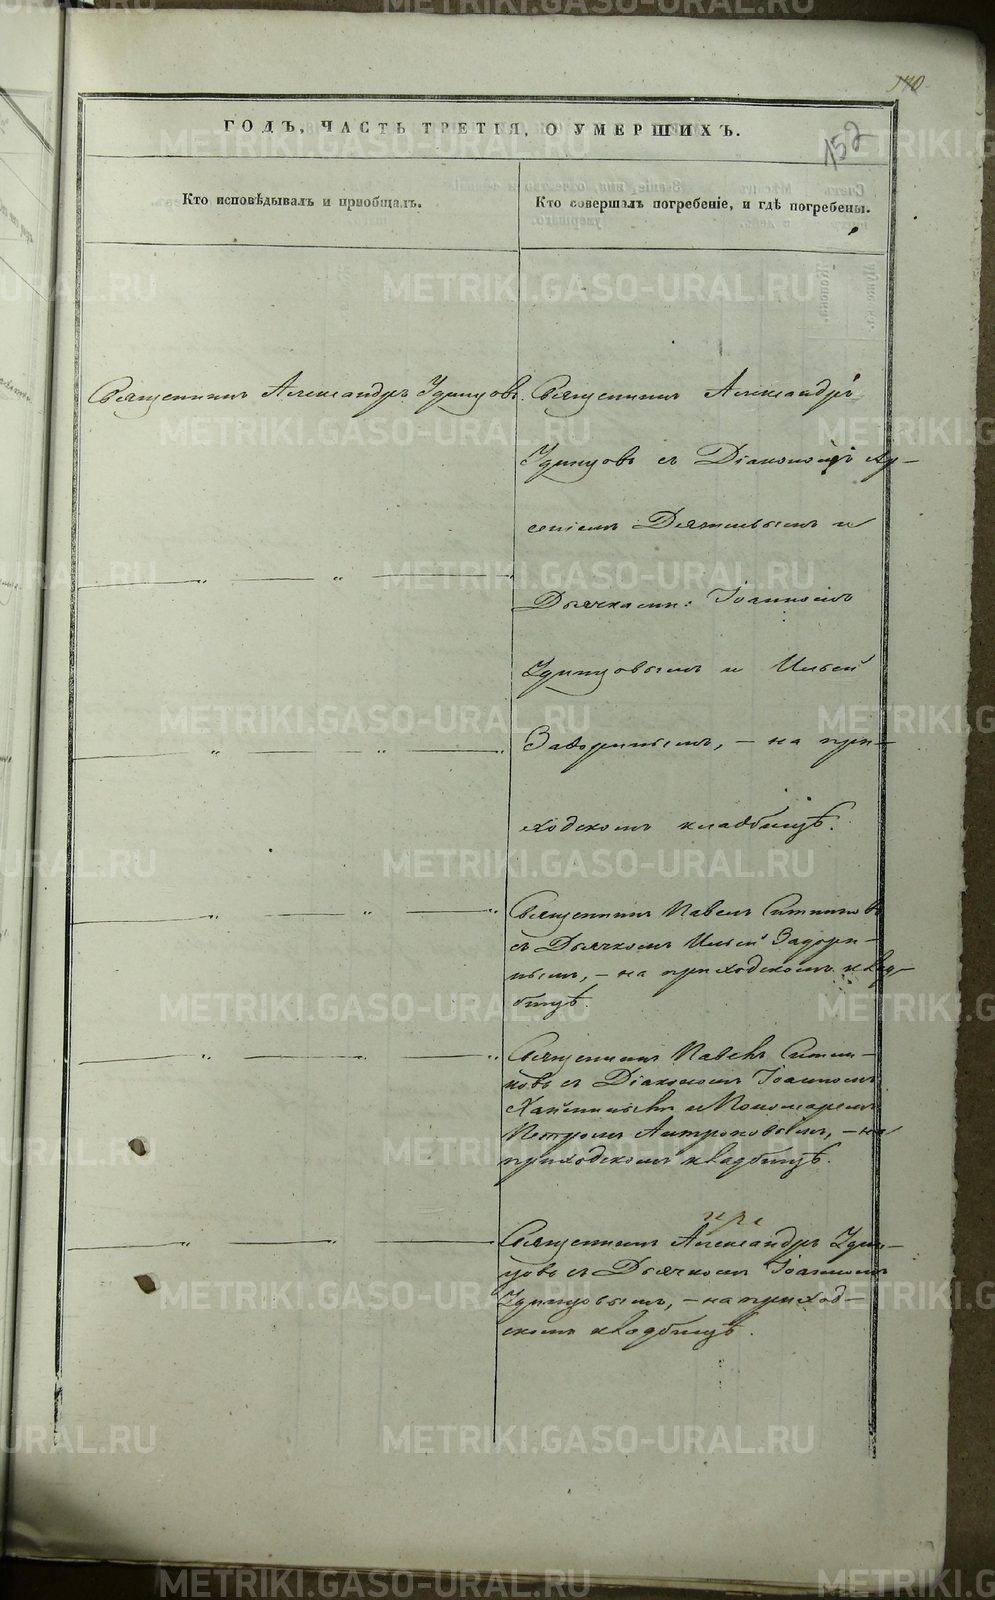 140
152
ГОДЪ, ЧАСТЬ ТРЕТІЯ, О УМЕРШИХЪ.
Кто исповѣдывалъ и пріобщалъ.
Кто совершалъ погребеніе, и гдѣ погребены.
Священникъ Александръ Удинцовъ.
Священникъ Александръ
Удинцовъ съ Діакономъ Ар-
сеніемъ и
Дьячками: Іоанномъ
Удинцовымъ и Ильей
Задоринымъ, – на при-
ходскомъ кладбищѣ.
Священникъ Павелъ Ситниковъ
съ Дьячкомъ Ильей Задори-
нымъ, – на приходскомъ клад-
бищѣ.
Священникъ Павелъ Ситни-
ковъ съ Діакономъ Іоанномъ
и Пономаремъ
Петромъ – на
приходскомъ кладбищѣ.
Священникъ Александръ Удин-
цовъ съ Дьячкомъ Іоанномъ
Удинцовымъ, – на приход-
скомъ кладбищѣ.
METRIKI.GASO-URAL.RU